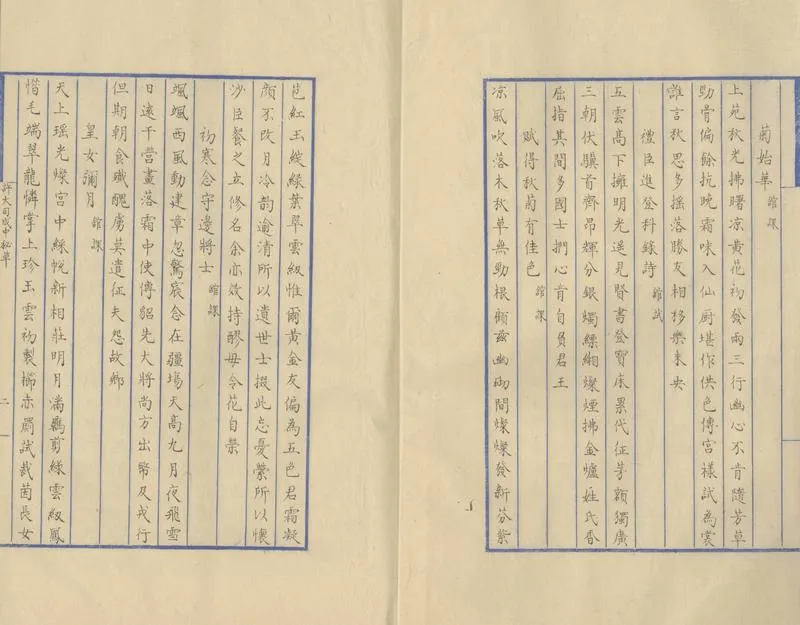 菊始華 館課
上苑秋光拂曙凉黄花初發兩三行幽心不肯隨芳草
勁骨偏餘抗晚霜味入仙廚堪作供色傳宮樣試為裳
誰言秋思多摇落勝友相移樂未央
禮臣進登科錄詩 館試
五雲高下擁明光遥見賢書登寶床累代征茅額獨廣
三朝伏驥首齊昂輝分銀燭縹緗燦煙拂金爐姓氏香
屈指其間多國士捫心肯自負君王
賦得秋菊有佳色 館課
凉風吹落木秋草無勁根頫兹幽砌間燦燦發新芬紫
苞紅玉綻綠葉翠雲級惟爾黄金友偏為五色君霜凝
顔不改月冷韵逾清所以遺世士掇此忘憂縈所以懷
沙臣餐之立修名余亦效持醪毋令花自榮
初寒念守邊將士 館課
颯颯西風動建章忽驚宸念在疆場天高九月夜飛雪
日遠千營晝落霜中使傳貂先大將尚方出幣及戎行
但期朝食殱醜虜莫遣征夫怨故鄉
皇女彌月 館課
天上瑶光燦宮中綵帨新相莊明月滿鸘剪綠雲級鳳
惜毛端翠龍憐掌上珍玉雲初製櫛赤罽試裁茵長女
許大司成中秘草
二